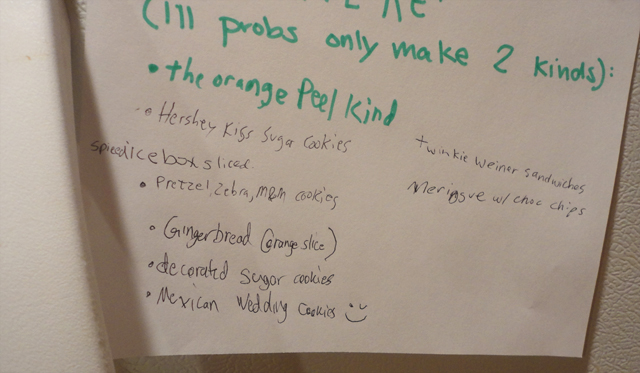 (I'll probs only make 2 kinds):
• the orange Peel Kind
• Hershey Kiss Suga Cookies
spiced ice box sliced.
• Pretzel, Zebra, M&M cookies
• Gingerbread (orange slice)
• decorated sugar cookies
• Mexican Wedding Cookies
twinkie weiner sandwiches
Meringue w/ choc chips